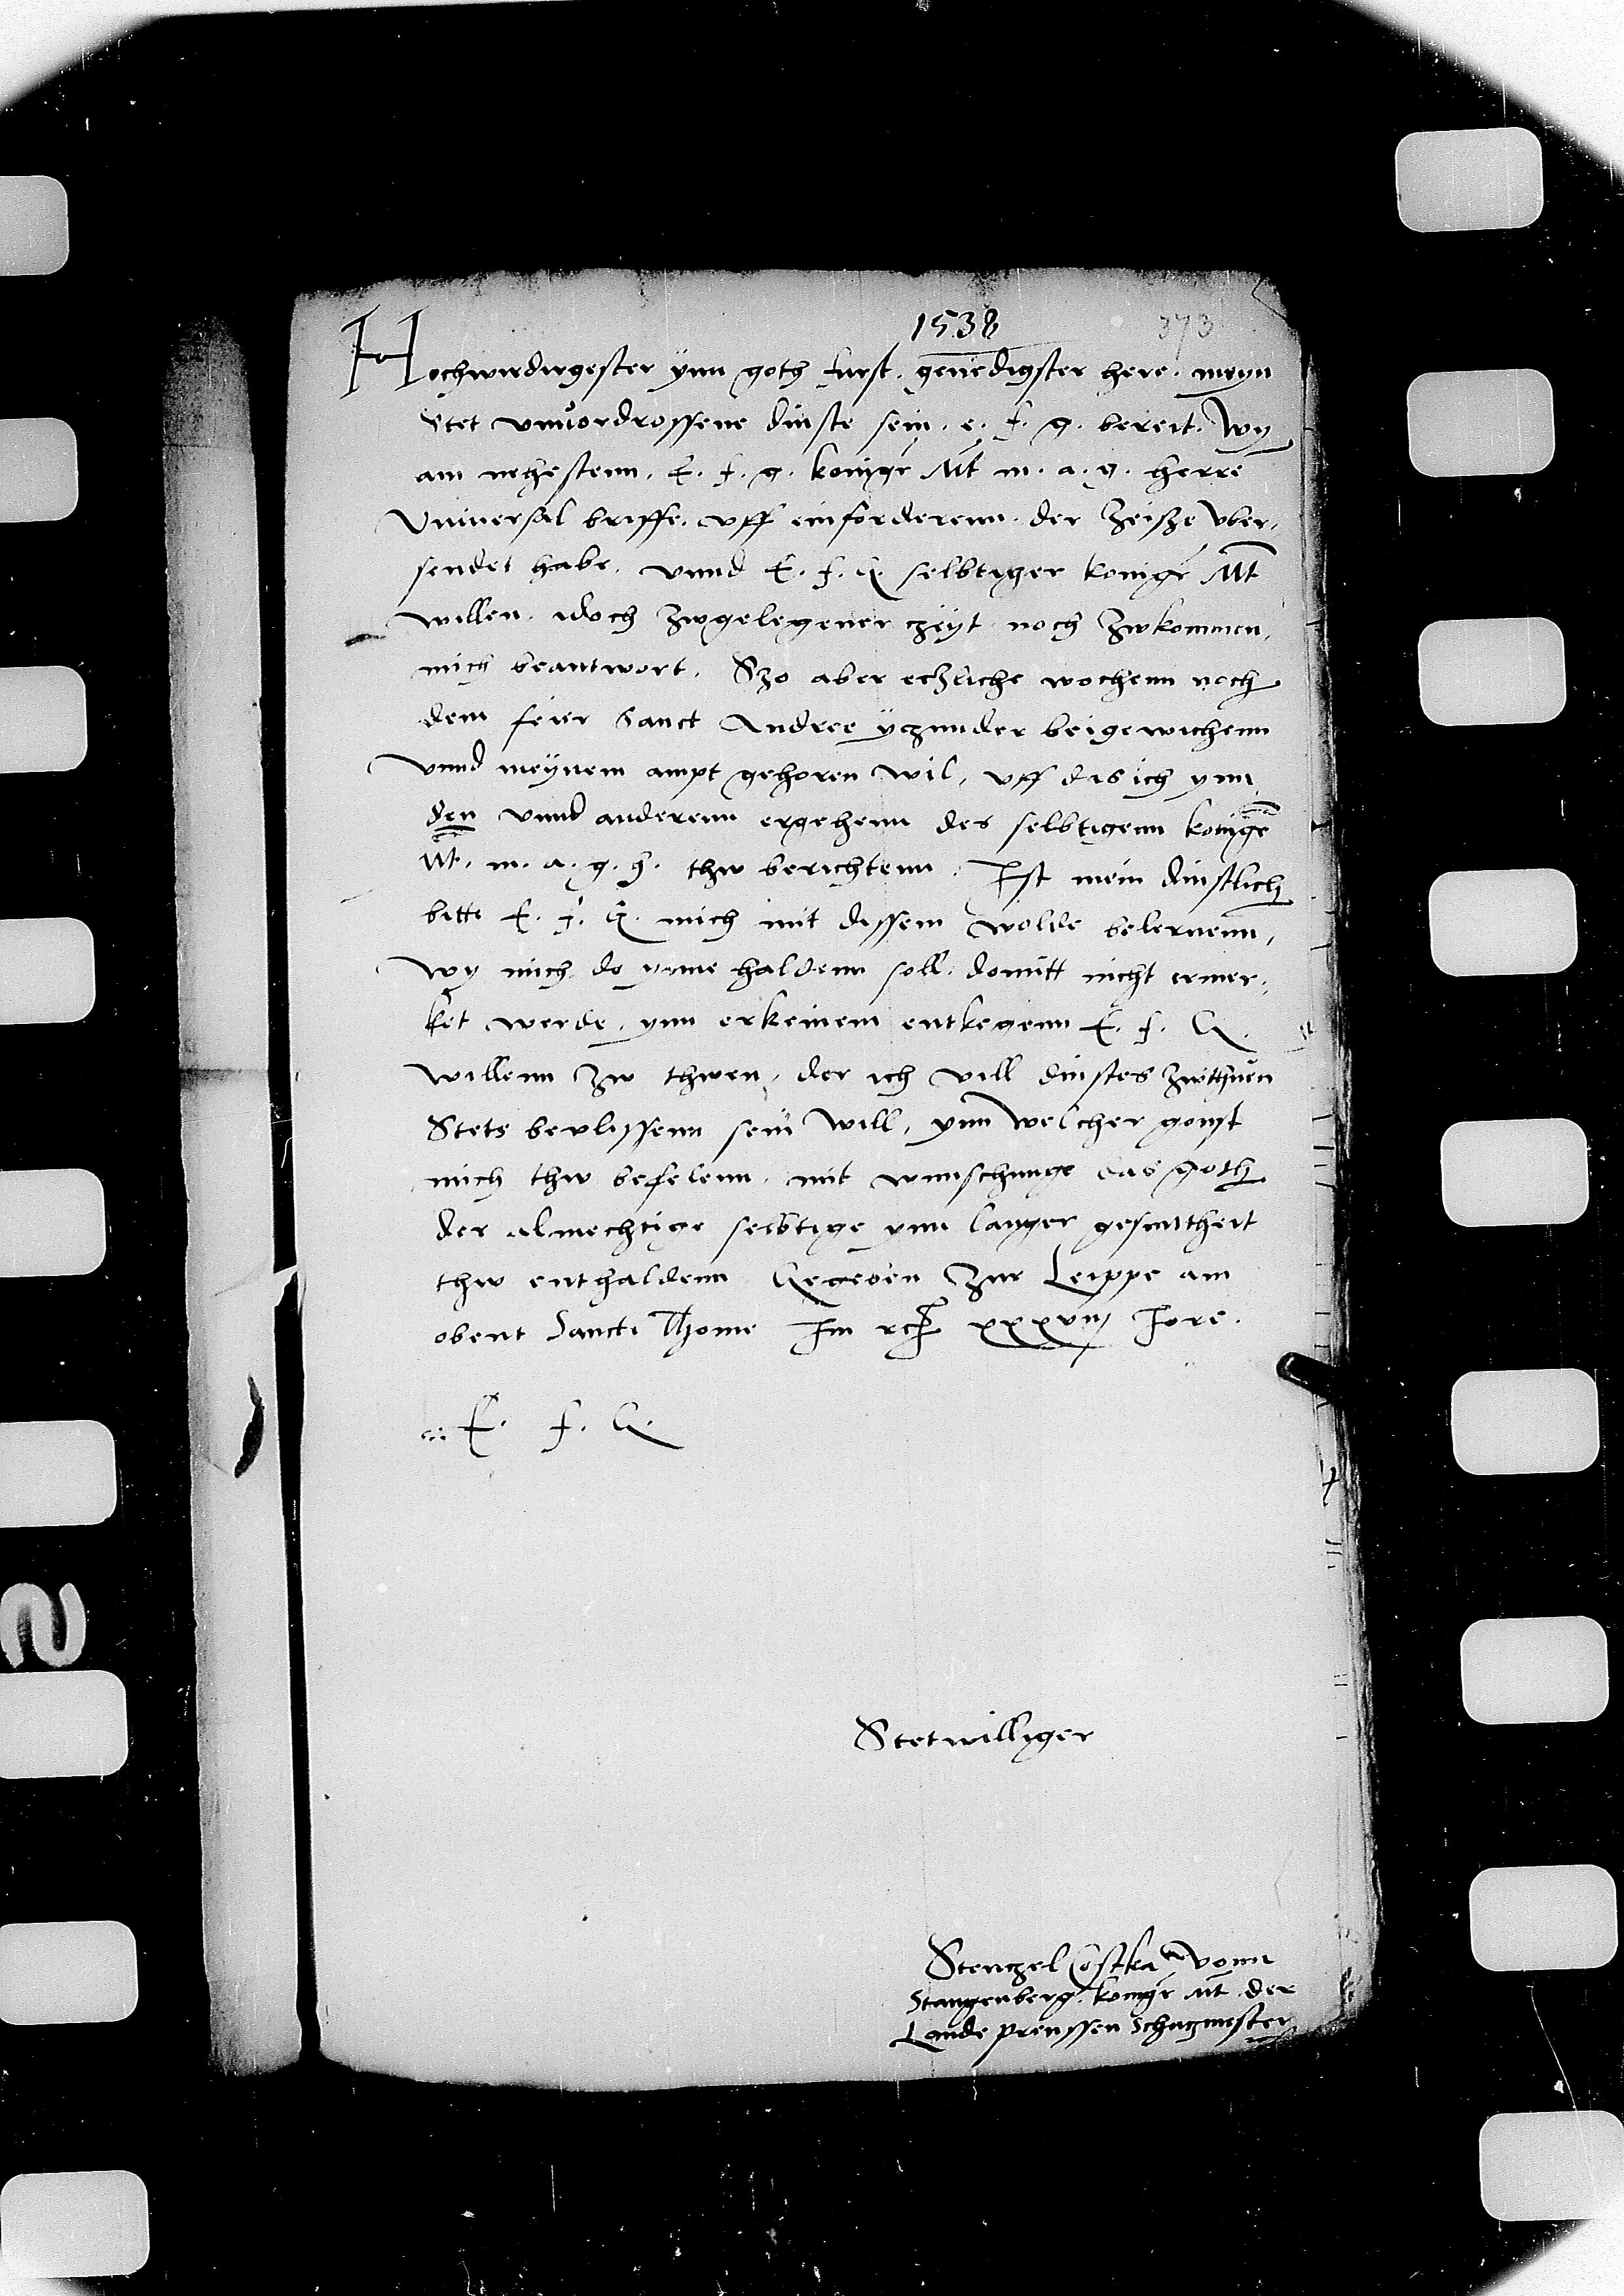 1538
373
Hochwirdigester ynn goth furst. genedigster here. meyn
stet vnuordrossene dinste sein. e. f. g. bereit. Wy
am nehestenn. E. f. g. konigr Mt m. a. g. herre
Vniuersal briffe. vff einforderenn. der Zeisze vber,
sendet habe. vnnd E. f. G. selbtiger konigr Mt
willen. idoch zwgelegener czeyt noch zwkommen,
mich beantwort. Szo aber eczliche wochenn noch
dem feier Sanct Andree yczunder beigewichenn
Vnnd meynem ampt gehoren wil, vff das ich ynn
den vnnd anderenn ergehenn des selbtigenn konige
Mt. m. a. g. h. thw berichtenn. Ist mein dinstlich
bitte E. f. G. mich mit dissem wolde belernenn,
Wy mich do ynne haldenn soll. domitt nicht ermer,
ket werde, ynn erkeinem entkegenn E. f. G.
willenn zw thwen, der ich vill dinstes zwthuen
Stets bevlissenn sein will, ynn welcher gonst
mich thw befelenn. mit wunschunge das goth
der almechtige selbtige ynn langer gesuntheit
thw enthaldenn Gegeben Zur Leippe am
obent Sancti Thome Im xxxviij Jore.
E. f. G.
Stetwilliger
Stenczel Costka vonn
Stangenberg. konigr Mt. der
Lande preussen Schaczmester